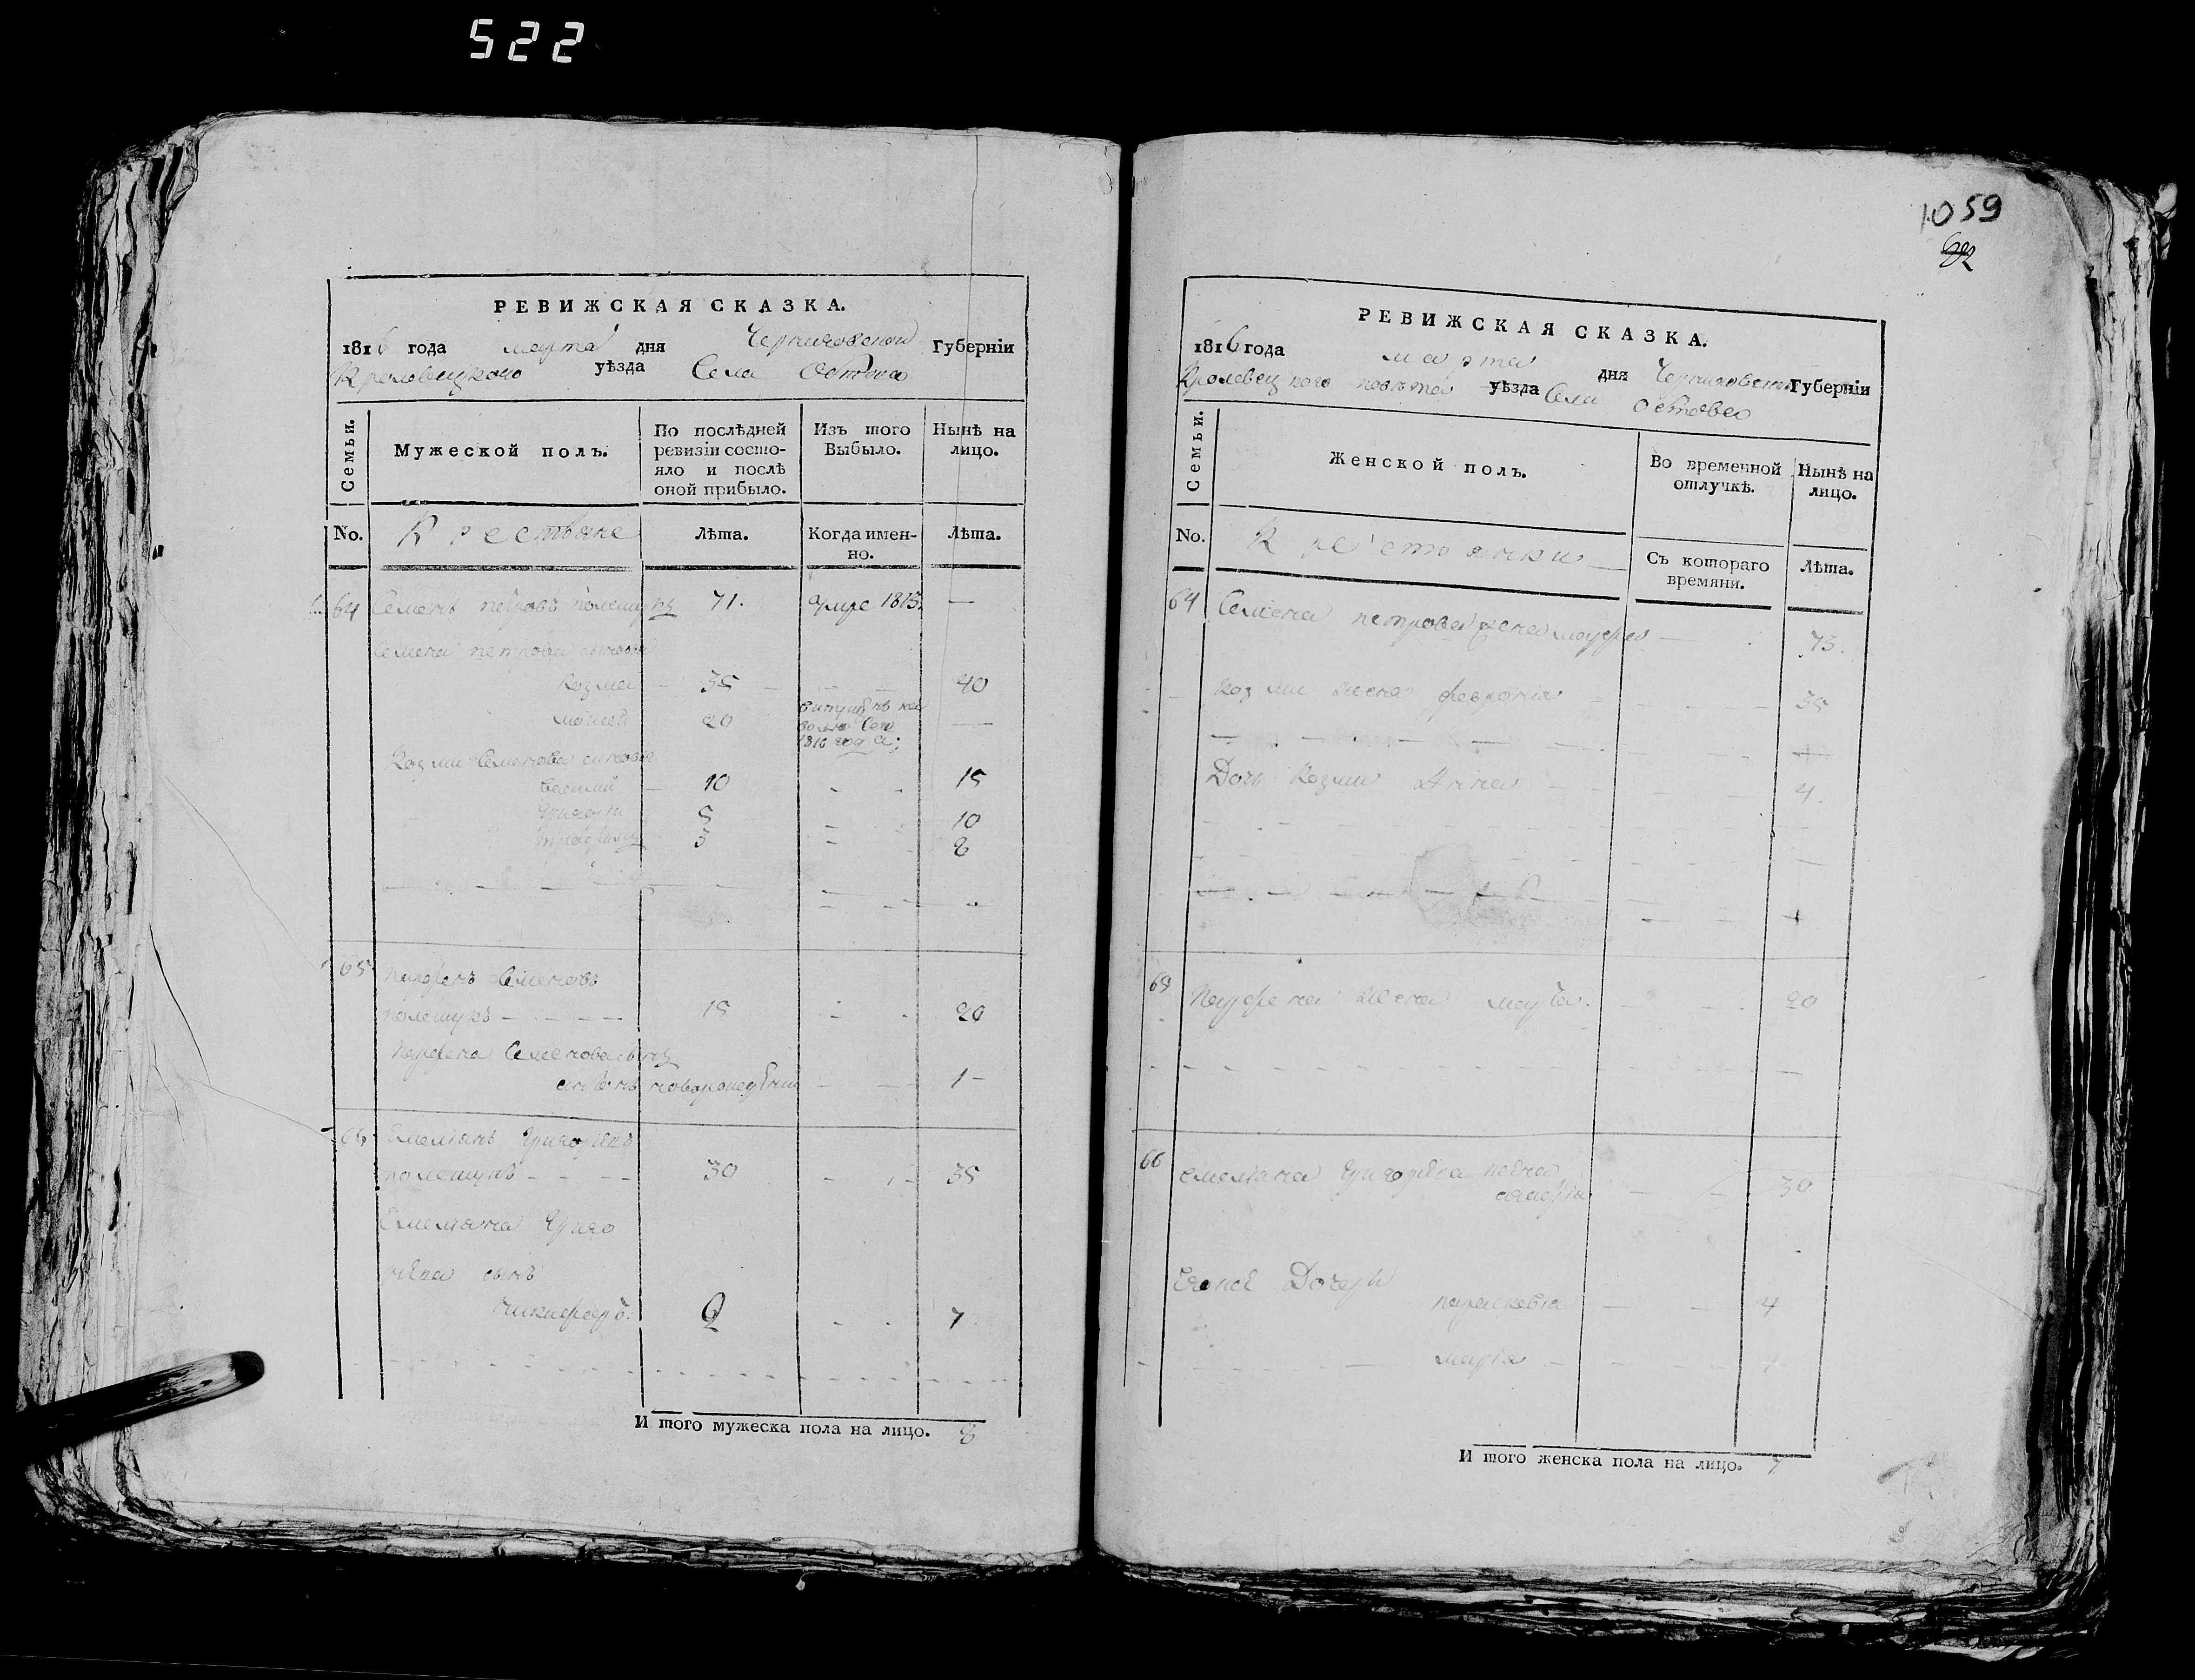 522
РЕВИЖСКАЯ СКАЗКА.
1816 года марта дня Черниговской Губерніи
Кролевецкого уѣзда Села
Семьи.
Мужеской полъ.
По послѣдней ревизіи состояло и послѣ оной прибыло.
Изъ того Выбыло.
Нынѣ на лицо.
No.
Крестьяне
Лѣта.
Когда именно.
Лѣта.
64 Семенъ петровъ полешукъ 71. умре 1815. —
Семена петрова синовья
Козма — 35 — — 40
20 —
1816 года;
Козми Семенова синовья
Василий — 10 - - 15
Григори 5 - 10
3 - 8
65 парфенъ Семеновъ
полешукъ - - - - 15 - - 20
парфена Семенова сынъ
новорожденъ — — 1 -
66 Емелянъ Григориевъ
полешукъ - - - - 30 - - - 35
Емеляна Григо
риева сынъ
никифоръ. 2 - - 7
И того мужеска пола на лицо. 8
1059
РЕВИЖСКАЯ СКАЗКА.
1816 года марта дня Черниговской Губерніи
Кролевецкого повѣта уѣзда Села
Семьи.
Женской полъ.
Во временной отлучкѣ.
Нынѣ на лицо.
No.
Крестьянки
Съ котораго времяни.
Лѣта.
64 Семена петрова жена марфа — 73.
Козми жена феврония 35
Дочь Козми Анна 4.
65 Парфена жена марья. 20
66 Емеляна Григориева жена
30
Егожъ Дочери
параскевия — 4
мария —
И того женска пола на лицо. 7